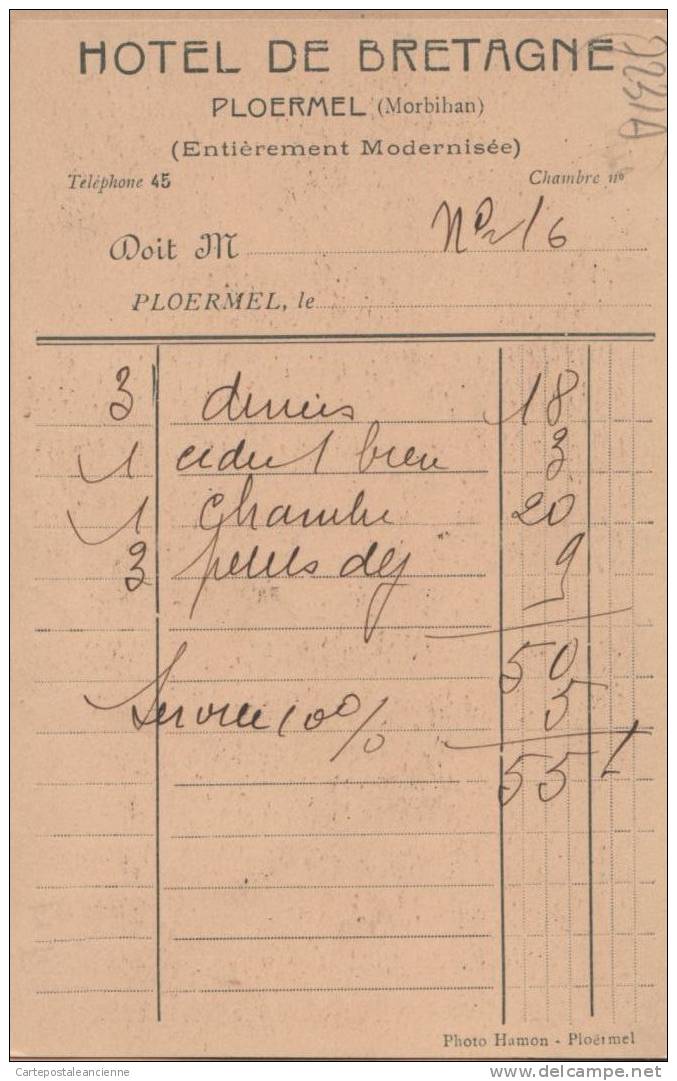 HOTEL DE BRETAGNE
PLOERMEL (Morbihan)
(Entièrement Modernisée)
Téléphone 45 Chambre nº
Nº 16
Doit M
PLOERMEL, le
3 diners 18
1 3
1 Chambre 20
3 petits dej 9
50
Service 10 % 5
55
Photo Hamon - Ploërmel
Cartepostaleancienne
www.delcampe.net